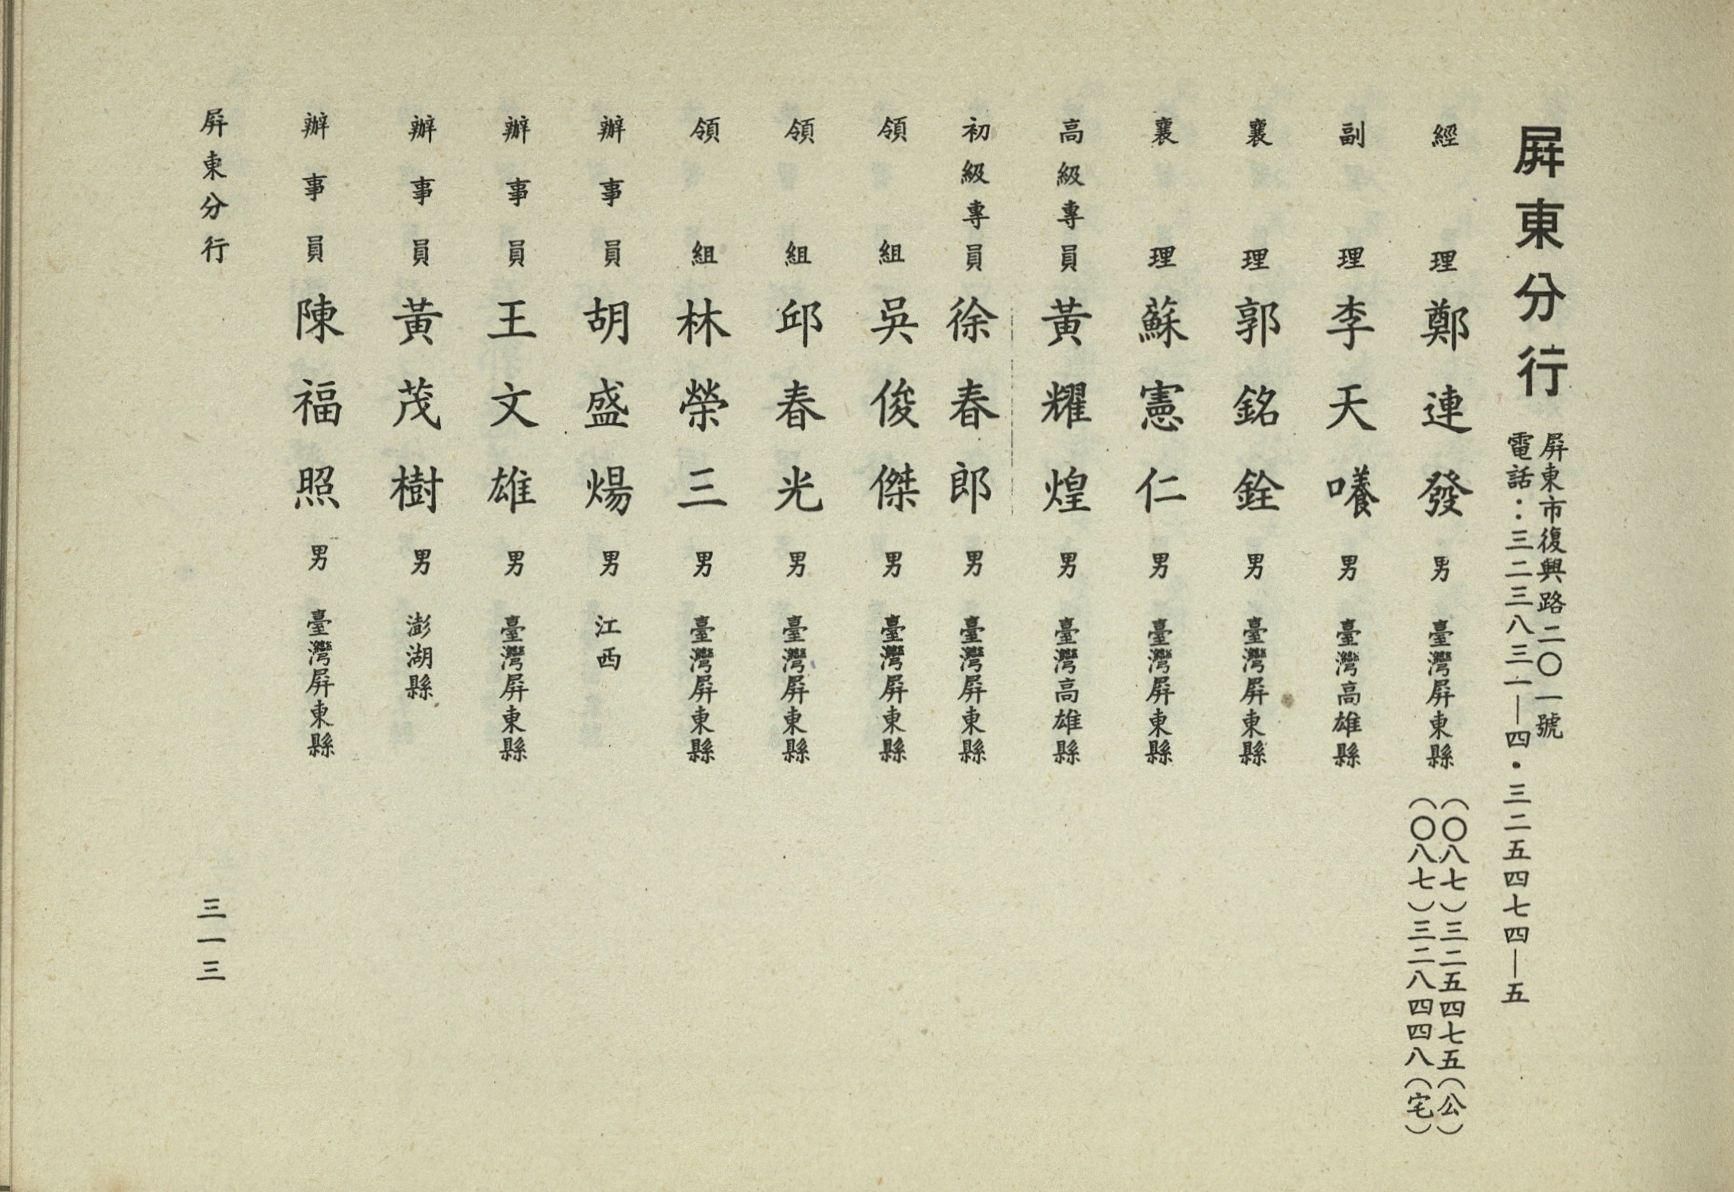 屏東分行
屏東市復興路二〇一號
電話：三二三八三一—四・三二五四七四—五
經理 鄭連發 男 臺灣屏東縣
（〇八七）三二五四七五（公）
（〇八七）三二八四四八（宅）
副理 李天嚷 男 臺灣高雄縣
襄理 郭銘銓 男 臺灣屏東縣
襄理 蘇憲仁 男 臺灣屏東縣
高級專員 黃耀煌 男 臺灣高雄縣
初級專員 徐春郎 男 臺灣屏東縣
領組 吳俊傑 男 臺灣屏東縣
領組 邱春光 男 臺灣屏東縣
領組 林榮三 男 臺灣屏東縣
辦事員 胡盛煬 男 江西
辦事員 王文雄 男 臺灣屏東縣
辦事員 黃茂樹 男 澎湖縣
辦事員 陳福照 男 臺灣屏東縣
屏東分行
三一三